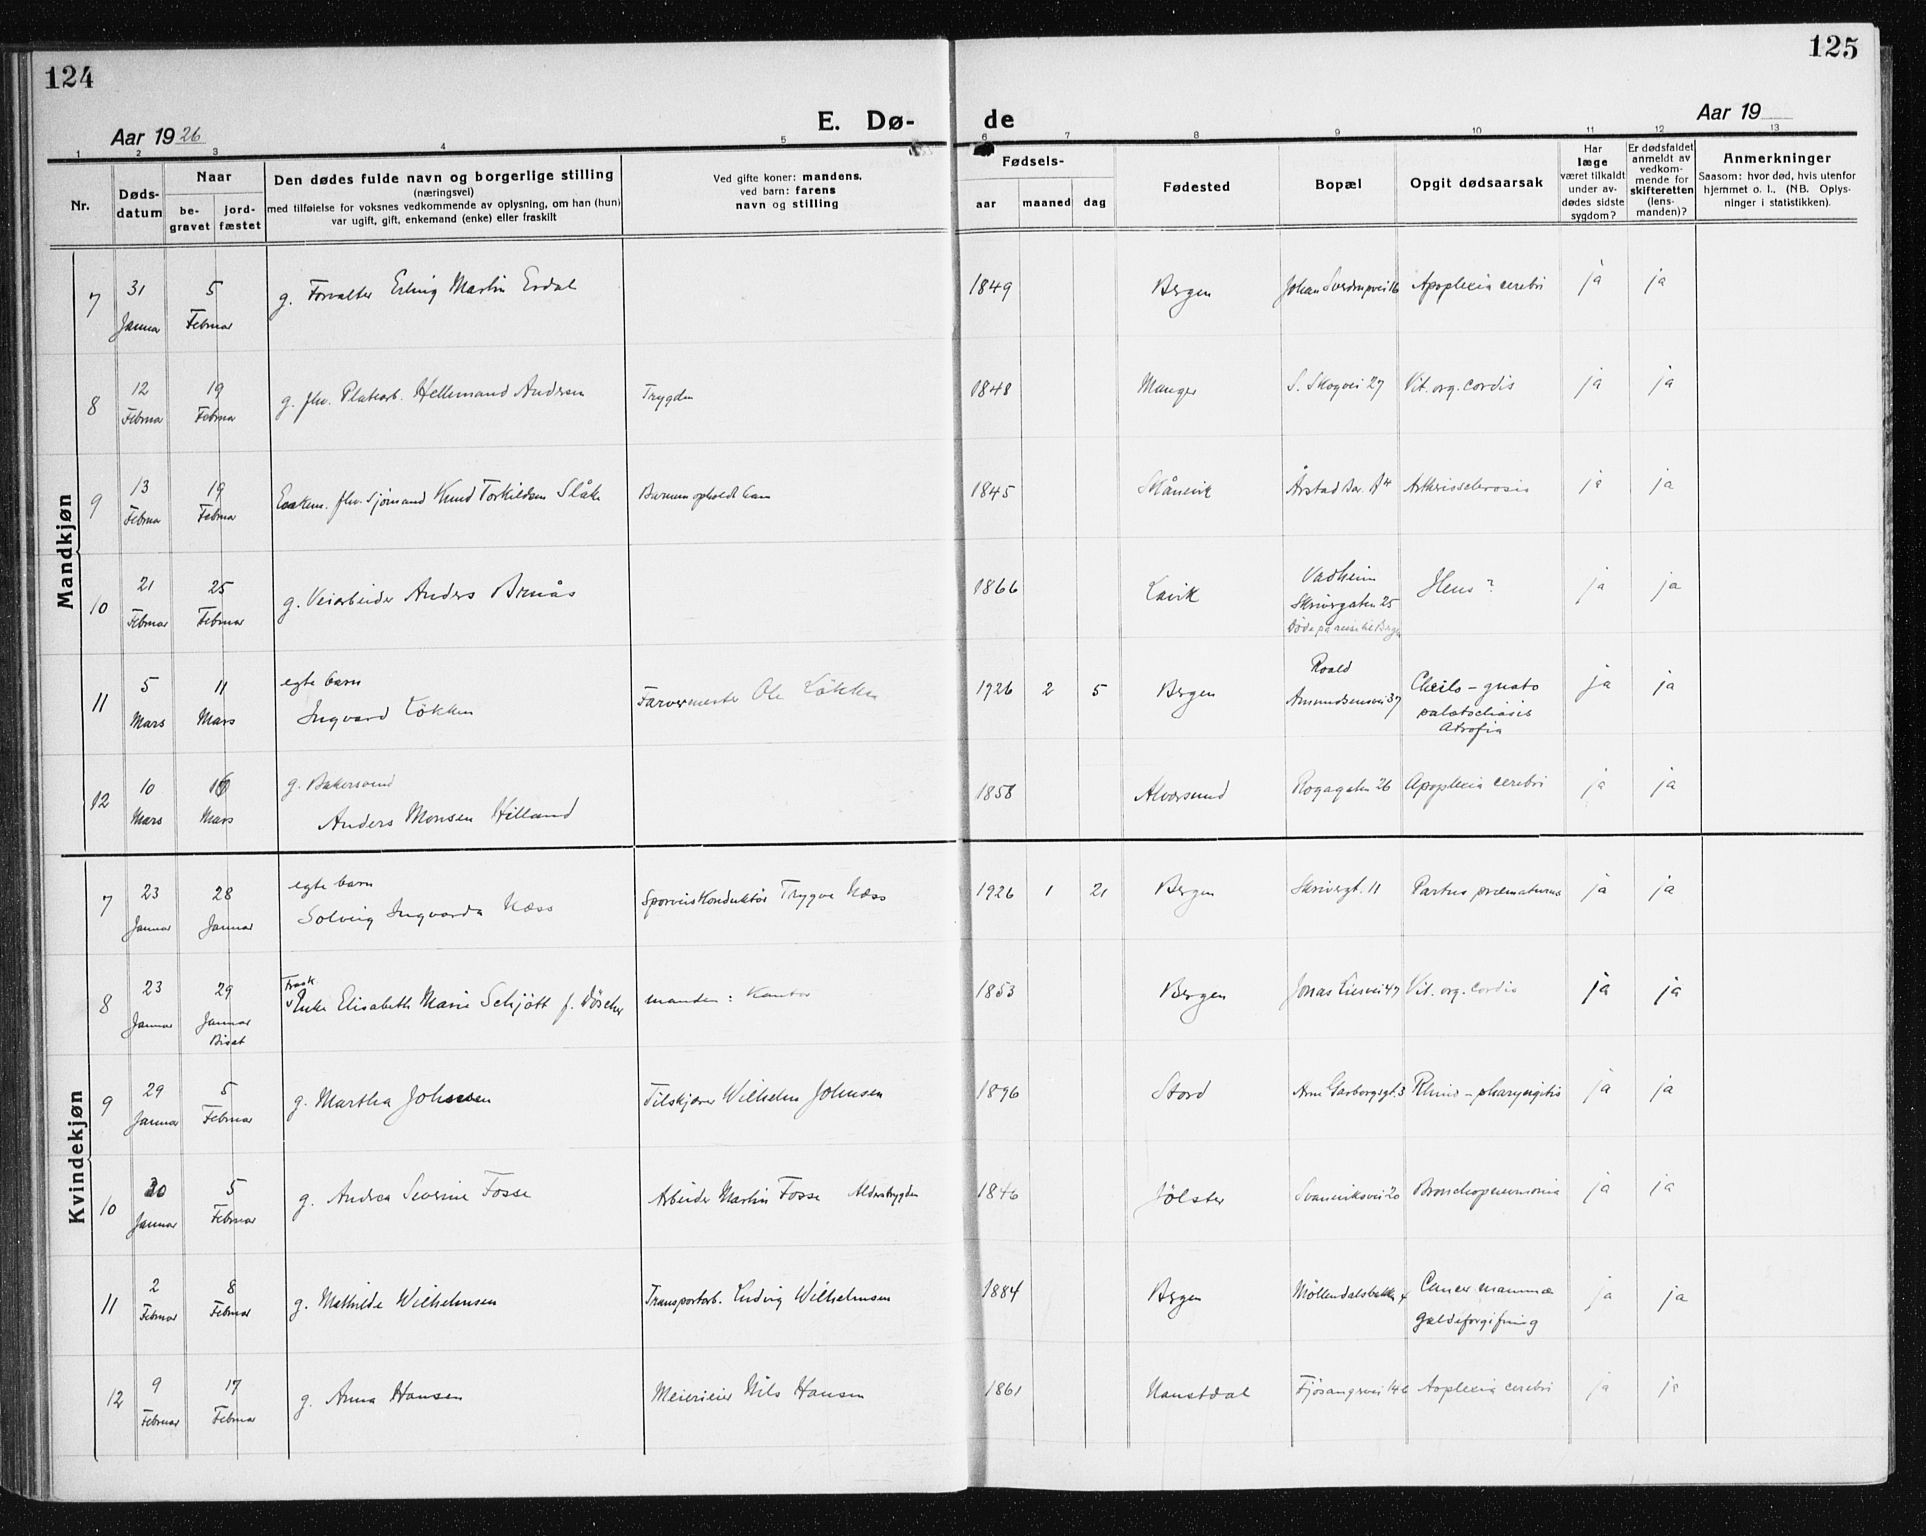 124
125
E. Dø-
de
Aar 1926
Aar 19
1 2 3 4 5 6 7 8 9 10 11 12 13
Nr.
Døds-
datum
Naar
be-
gravet
jord-
fæstet
Den dødes fulde navn og borgerlige stilling
(næringsvei)
med tilføielse for voksnes vedkommende av oplysning, om han (hun)
var ugift, gift, enkemand (enke) eller fraskilt
Ved gifte koner: mandens,
ved barn: farens
navn og stilling
Fødsels-
aar maaned dag
Fødested
Bopæl
Opgit dødsaarsak
Har
læge
været tilkaldt
under av-
dødes sidste
sygdom?
Er dødsfaldet
anmeldt av
vedkom-
mende for
skifteretten
(lens-
manden)?
Anmerkninger
Saasom: hvor død, hvis utenfor
hjemmet o. l., (NB. Oplys-
ninger i statistikken).
Mandkjøn
7 31 Januar 5 Februar g. Forvalter Erling Martin Erdal 1849 Bergen Johan Sverdrupsvei 16 Apoplexia cerebri ja ja
8 12 Februar 19 Februar g. fhv. Platearb. Hellemand Andersen Trygden 1848 Manger S. Skogvei 27 Vit. org. cordis ja ja
9 13 Februar 19 Februar fhv. Sjømand Knud Torkildsen Slåke 1845 Skånevik Årstad Bar. Arteriosclerosis ja ja
10 21 Februar 25 Februar g. Veiarbeider Anders Brnås 1866 Lavik
Vadheim
Skrivergaten 25
Døde på reise til Bergen
Ileus? ja ja
11 5 Mars 11 Mars
egte barn
Ingvard Løkken
Farvermester Ole Løkken 1926 2 5 Bergen
Roald
Amundsensvei 37
Cheilo-gnato
palatochisis
Atrofia
ja ja
12 10 Mars 16 Mars
g. Bakersvend
Anders Monsen Hilland
1858 Alversund Rogagaten 26 Apoplexia cerebri ja ja
Kvindekjøn
7 23 Januar 28 Januar
egte barn
Solveig Ingvarda Næss
Sporveiskonduktør Trygve Næss 1926 1 21 Bergen Skrivergt. 11 Partus præmaturus ja ja
8 23 Januar 29 Januar
Bisat
Frask
Enke Elisabeth Marie Schjøtt f. Döscher manden: Kantor 1853 Bergen Jonas Liesvei 47 Vit. org. cordis ja ja
9 29 Januar 5 Februar g. Martha Johnsen Tilskjærer Wilhelm Johnsen 1896 Stord Arne Garborgsgt. 3 Rhino-pharyngitis ja ja
10 30 Januar 5 Februar g. Andrea Severine Fosse Arbeider Martin Fosse Alderstrygden 1846 Jølster Svaneviksvei 20 Bronchopneumonia ja ja
11 2 Februar 8 Februar g. Mathilde Wilhelmsen Transportarb. Ludvig Wilhelmsen 1884 Bergen Møllendalsbakke 4
Cancer mammæ
Galdeforgiftning
ja ja
12 9 Februar 17 Februar g. Anna Hansen Meierieier Nils Hansen 1861 Naustdal Fjøsangervei 146 Aoplexia cerebri ja ja